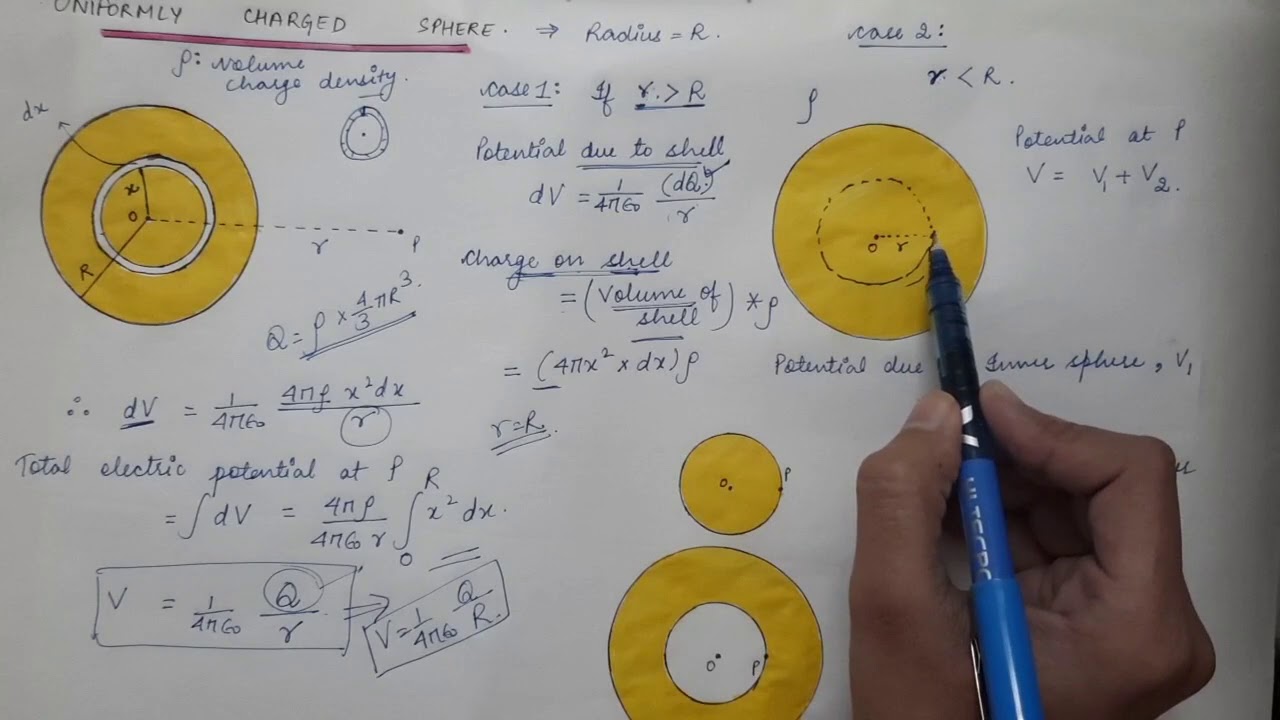 UNIFORMLY CHARGED SPHERE. ⇒ Radius = R.
ρ: volume
charge density.
dx
x
O
R
r
P
Q = ρ × 4/3 πR³.
∴ dV = 1/4πϵ₀ 4πρ x²dx / r
Total electric potential at P
= ∫ dV = 4πρ / 4πϵ₀ r ∫₀ᴿ x² dx.
V = 1/4πϵ₀ Q/r
V = 1/4πϵ₀ Q/R.
case 1: If r > R
Potential due to shell
dV = 1/4πϵ₀ (dQ) / r
Charge on shell
= (Volume of shell) * ρ
= (4πx² × dx) ρ
r = R.
case 2:
r < R.
ρ
O r
Potential at P
V = V₁ + V₂.
Potential due Inner sphere, V₁
O P
O P